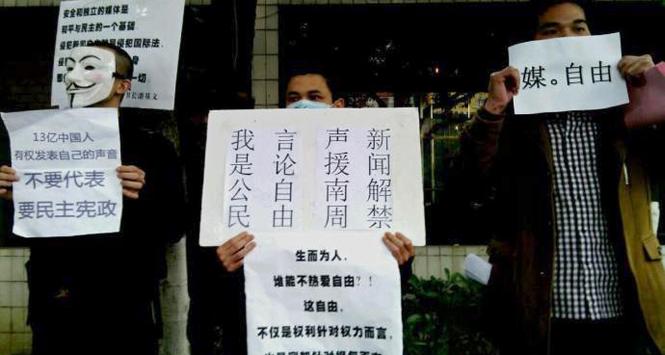 安全和独立的媒体是
和平与民主的一个基础
侵犯新闻自由就是侵犯国际法,
侵
身
一切.
书长潘基文
13亿中国人
有权发表自己的声音
不要代表
要民主宪政
新闻解禁
声援南周
言论自由
我是公民
生而为人,
谁能不热爱自由?!
这自由,
不仅是权利针对权力而言,
媒。自由